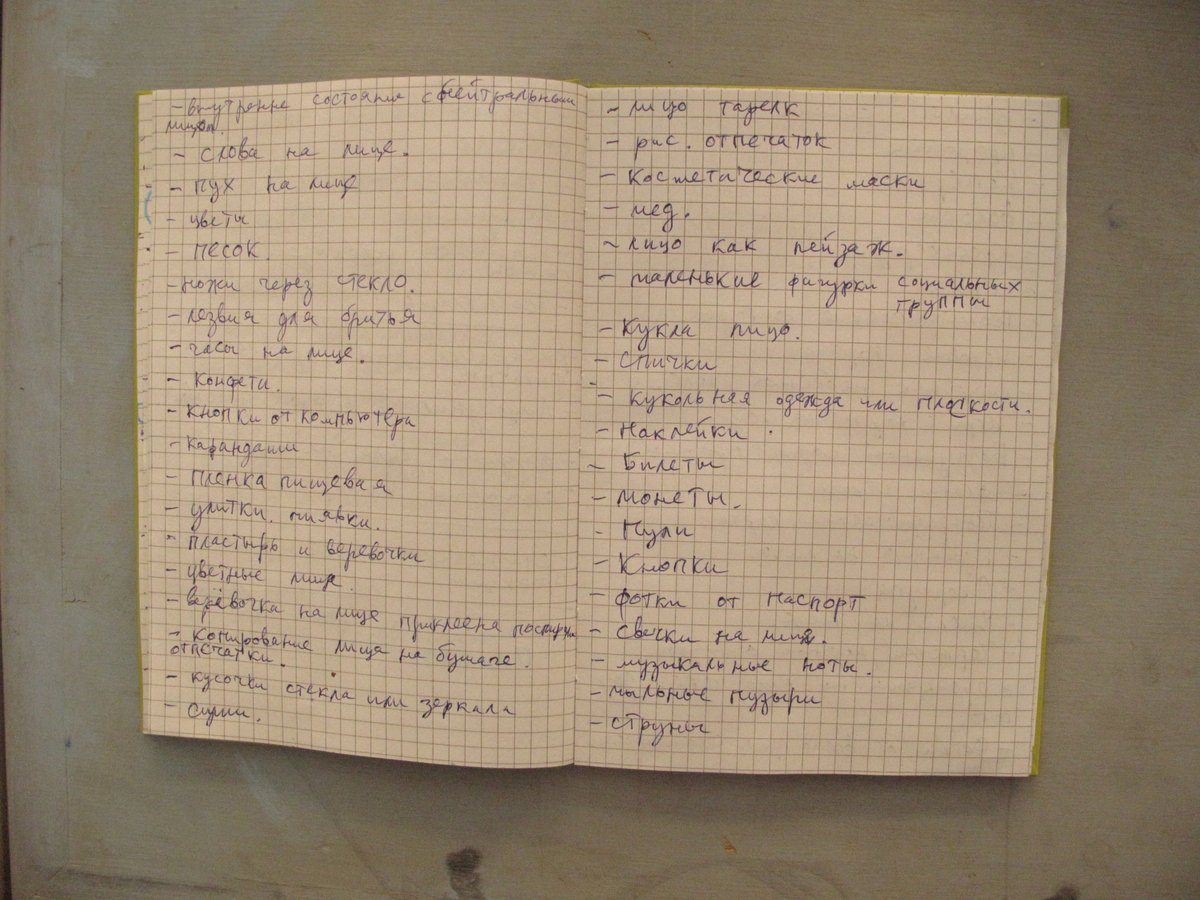 - внутренне состояние с нейтральным
лицом.
- слова на лице.
- пух на лице
- цветы
- песок.
- ножи через стекло.
- лезвия для бритья
- часы на лице.
- Конфети.
- Кнопки от компьютера
- карандаши
- пленка пищевая
- улитки. пиявки.
- пластырь и веревочки
- цветные лица
- верёвочка на лице приклеена
- копирование лица на бумаге.
отпечатки.
- кусочки стекла или зеркала
- лицо тарелк
- рис. отпечаток
- Косметические маски
- мёд.
- лицо как пейзаж.
- маленькие фигурки социальных
группы
- Кукла лицо.
- спички
- кукольная одежда или плоскости.
- Наклейки
- Билеты
- монеты.
- Нули
- Кнопки
- фотки от паспорт
- свечки на лице.
- музыкальные ноты.
- мыльные пузыри
- струны